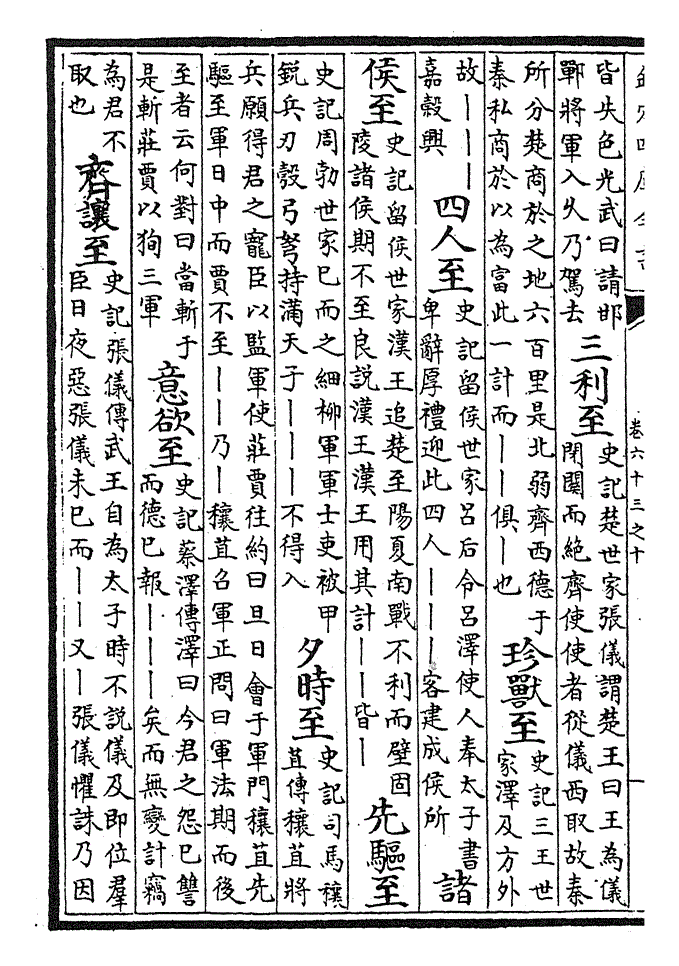 欽定四庫全書
卷六十三之十
皆失色光武曰請邯
鄲將軍入久乃駕去
三利至
史記楚世家張儀謂楚王曰王為儀
閉關而絕齊使使者從儀西取故秦
所分楚商於之地六百里是北弱齊西德于
秦私商於以為富此一計而丨丨俱丨也
珍獸至
史記三王世
家澤及方外
故丨丨丨
嘉穀興
四人至
史記留侯世家呂后令呂澤使人奉太子書
卑辭厚禮迎此四人丨丨丨客建成侯所
諸
侯至
史記留侯世家漢王追楚至陽夏南戰不利而壁固
陵諸侯期不至良説漢王漢王用其計丨丨皆丨
先驅至
史記周勃世家已而之細柳軍軍士吏被甲
鋭兵刃彀弓弩持滿天子丨丨丨不得入
夕時至
史記司馬穰
苴傳穰苴將
兵願得君之寵臣以監軍使莊賈往約曰旦日會于軍門穰苴先
驅至軍日中而賈不至丨丨乃丨穰苴召軍正問曰軍法期而後
至者云何對曰當斬于
是斬莊賈以狥三軍
意欲至
史記蔡澤傳澤曰今君之怨已讐
而德已報丨丨丨矣而無變計竊
為君不
取也
齊讓至
史記張儀傳武王自為太子時不説儀及即位羣
臣日夜惡張儀未已而丨丨又丨張儀懼誅乃因